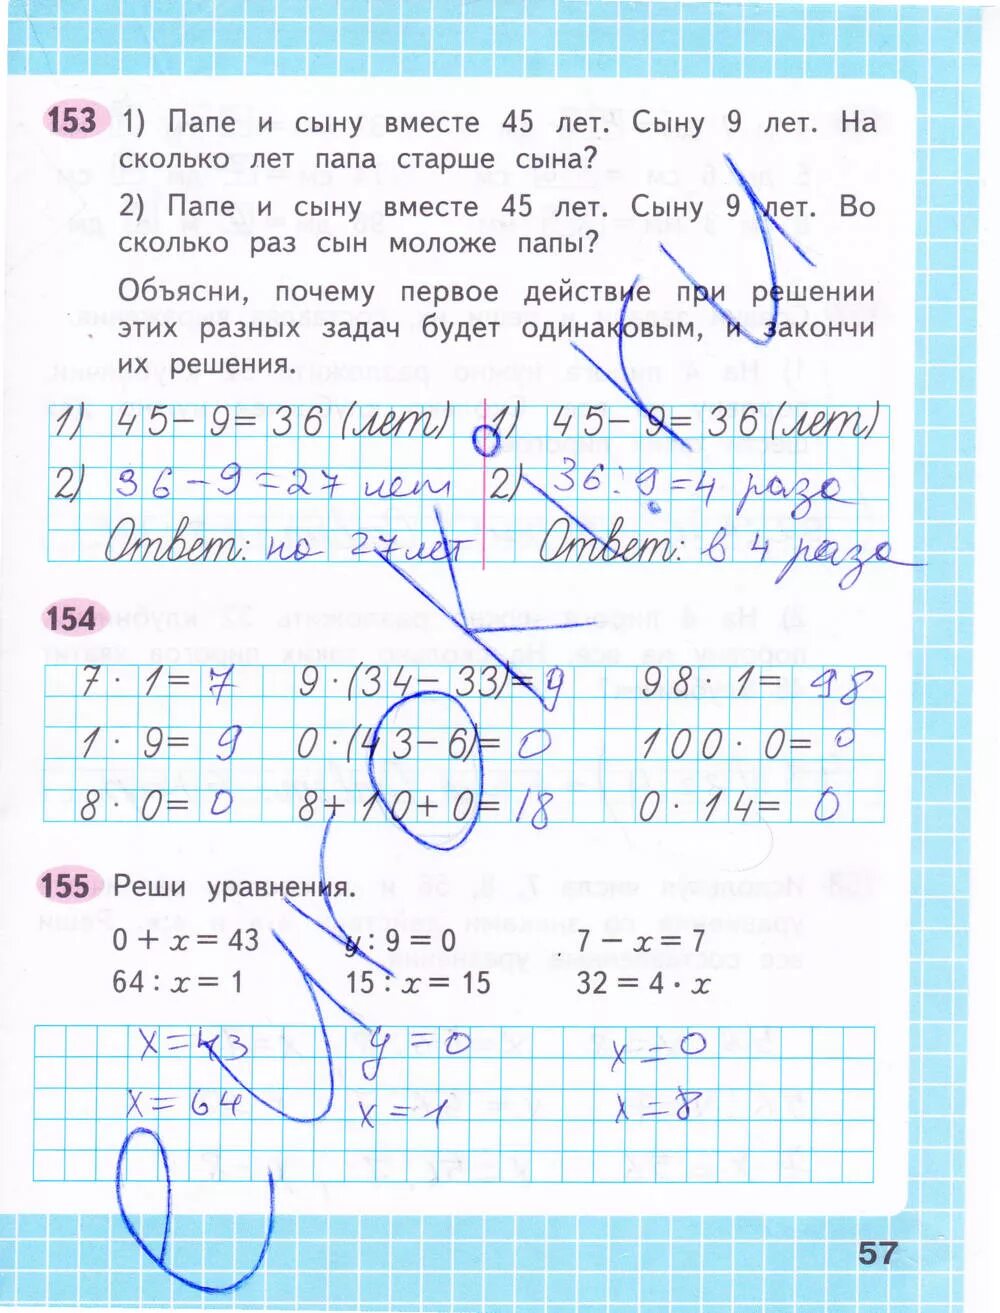 153 1) Папе и сыну вместе 45 лет. Сыну 9 лет. На
сколько лет папа старше сына?
2) Папе и сыну вместе 45 лет. Сыну 9 лет. Во
сколько раз сын моложе папы?
Объясни, почему первое действие при решении
этих разных задач будет одинаковым, и закончи
их решения.
1) 45 - 9 = 36 (лет) 1) 45 - 9 = 36 (лет)
2) 36 - 9 = 27 лет 2) 36 : 9 = 4 раза
Ответ: на 27 лет Ответ: в 4 раза
154
7 · 1 = 7 9 · (34 - 33) = 9 98 · 1 = 98
1 · 9 = 9 0 · (43 - 6) = 0 100 · 0 = 0
8 · 0 = 0 8 + 10 + 0 = 18 0 · 14 = 0
155 Реши уравнения.
0 + x = 43 y : 9 = 0 7 - x = 7
64 : x = 1 15 : x = 15 32 = 4 · x
x = 43 y = 0 x = 0
x = 64 x = 1 x = 8
57